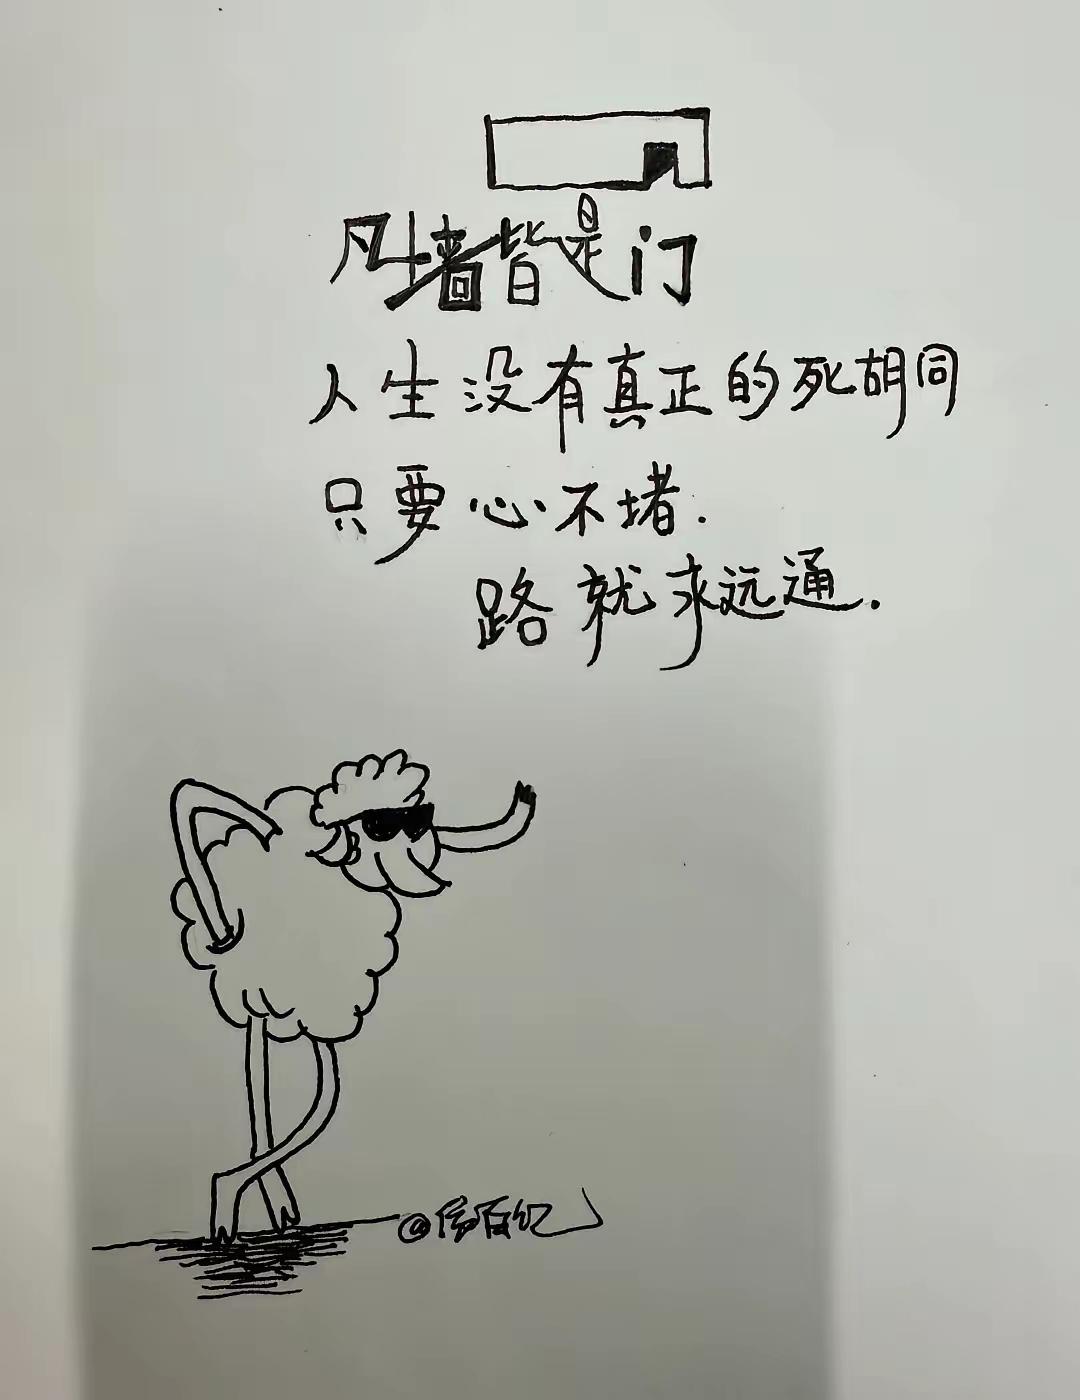 凡墙皆是门
人生没有真正的死胡同
只要心不堵.
路就永远通.